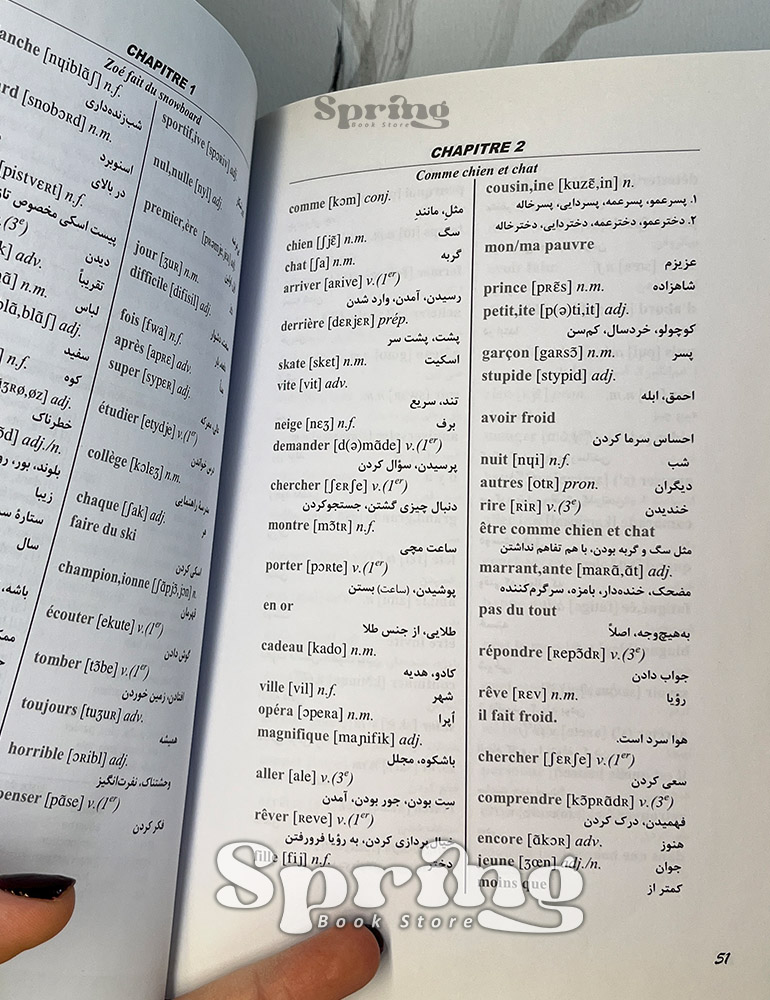 CHAPITRE 1
Zoé fait du snowboard
anche [nɥiblɑ̃ʃ] n.f.
شب‌زنده‌داری
[snobɔʀd] n.m.
اسنوبرد
در بالای
[pistvɛʀt] n.f.
پیست اسکی مخصوص
v.(3e)
دیدن
adv.
تقریباً
n.m.
لباس
adj.
سفید
n.f.
کوه
adj.
خطرناک
adj./n.
بلوند، بور،
زیبا
ستارهٔ
سال
باشه،
sportif,ive [spɔʀtiv] adj.
nul,nulle [nyl] adj.
premier,ère
jour [ʒuʀ] n.m.
difficile [difisil] adj.
fois [fwa] n.f.
après [apʀɛ] adv.
super [sypɛʀ] adj.
étudier [etydje] v.(1er)
درس خواندن
collège [kɔlɛʒ] n.m.
مدرسهٔ راهنمایی
chaque [ʃak] adj.
هر
faire du ski
اسکی کردن
champion,ionne [ʃɑ̃pjɔ̃,jɔn] n.
قهرمان
écouter [ekute] v.(1er)
گوش دادن
tomber [tɔ̃be] v.(1er)
افتادن، زمین خوردن
toujours [tuʒuʀ] adv.
همیشه
horrible [ɔʀibl] adj.
وحشتناک، نفرت‌انگیز
penser [pɑ̃se] v.(1er)
فکر کردن
Spring
Book Store
CHAPITRE 2
Comme chien et chat
comme [kɔm] conj.
مثل، مانندِ
chien [ʃjɛ̃] n.m. سگ
chat [ʃa] n.m. گربه
arriver [aʀive] v.(1er)
رسیدن، آمدن، وارد شدن
derrière [dɛʀjɛʀ] prép.
پشت، پشت سر
skate [skɛt] n.m. اسکیت
vite [vit] adv.
تند، سریع
neige [nɛʒ] n.f. برف
demander [d(ə)mɑ̃de] v.(1er)
پرسیدن، سؤال کردن
chercher [ʃɛʀʃe] v.(1er)
دنبال چیزی گشتن، جستجوکردن
montre [mɔ̃tʀ] n.f.
ساعت مچی
porter [pɔʀte] v.(1er)
پوشیدن، (ساعت) بستن
en or
طلایی، از جنس طلا
cadeau [kado] n.m.
کادو، هدیه
ville [vil] n.f. شهر
opéra [ɔpeʀa] n.m. اُپرا
magnifique [maɲifik] adj.
باشکوه، مجلل
aller [ale] v.(3e)
سِت بودن، جور بودن، آمدن
rêver [ʀeve] v.(1er)
خیال‌پردازی کردن، به رؤیا فرورفتن
fille [fij] n.f. دختر
cousin,ine [kuzɛ̃,in] n.
۱. پسرعمو، پسرعمه، پسردایی، پسرخاله
۲. دخترعمو، دخترعمه، دختردایی، دخترخاله
mon/ma pauvre
عزیزم
prince [pʀɛ̃s] n.m. شاهزاده
petit,ite [p(ə)ti,it] adj.
کوچولو، خردسال، کم‌سن
garçon [gaʀsɔ̃] n.m. پسر
stupide [stypid] adj.
احمق، ابله
avoir froid
احساس سرما کردن
nuit [nɥi] n.f. شب
autres [otʀ] pron. دیگران
rire [ʀiʀ] v.(3e) خندیدن
être comme chien et chat
مثل سگ و گربه بودن، با هم تفاهم نداشتن
marrant,ante [maʀɑ̃,ɑ̃t] adj.
مضحک، خنده‌دار، بامزه، سرگرم‌کننده
pas du tout
به‌هیچ‌وجه، اصلاً
répondre [ʀepɔ̃dʀ] v.(3e)
جواب دادن
rêve [ʀɛv] n.m. رؤیا
il fait froid.
هوا سرد است.
chercher [ʃɛʀʃe] v.(1er)
سعی کردن
comprendre [kɔ̃pʀɑ̃dʀ] v.(3e)
فهمیدن، درک کردن
encore [ɑ̃kɔʀ] adv. هنوز
jeune [ʒœn] adj./n. جوان
moins que کمتر از
Spring
Book Store
51